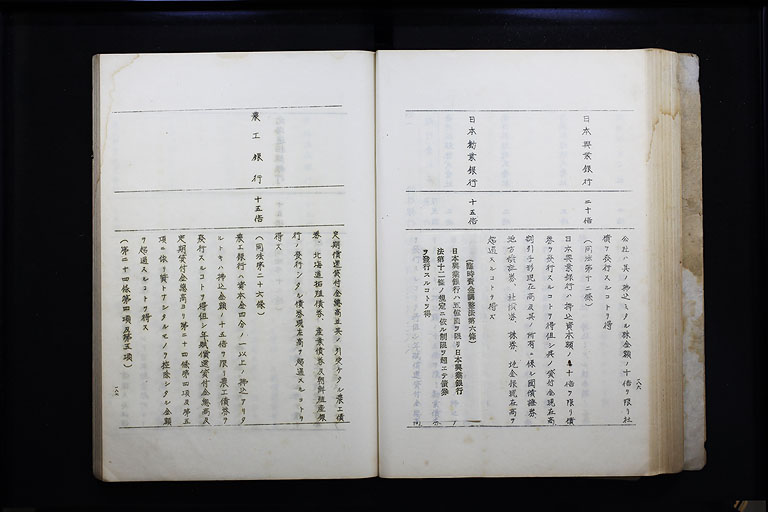 公社ハ其ノ拂込ミタル株金額ノ十倍ヲ限リ社
債ヲ發行スルコトヲ得
日本興業銀行
二十倍
(同法第十二條)
日本興業銀行ハ拂込資本額ノ十倍ヲ限リ債
券ヲ發行スルコトヲ得但シ其ノ貸付金現在高
割引手形現在高及其ノ所有ニ係ル國債證券
地方債證券、社債券、株券、地金銀現在高ヲ
超過スルコトヲ得ズ
日本勸業銀行
十五倍
(臨時資金調整法第六條)
日本興業銀行ハ五億圓ヲ限リ日本興業銀行
法第十二條ノ規定ニ依ル制限ヲ超エテ債券
ヲ發行スルコトヲ得
八六
定期償還貸付金總高並其ノ引受ケタル農工債
券、北海道拓殖債券、産業債券及朝鮮殖産銀
行ノ發行シタル債券現在高ヲ超過スルコトヲ
得ズ
農工銀行
十五倍
(同法第二十六條)
農工銀行ハ資本金四分ノ一以上ノ拂込アリタ
ルトキハ拂込金額ノ十五倍ヲ限リ農工債券ヲ
發行スルコトヲ得但シ年賦償還貸付金總高及
定期貸付金總高ヨリ第二十四條第四項及第五
項ニ依リ貸付アリタルモノヲ控除シタル金額
ヲ超過スルコトヲ得ズ
(第二十四條第四項及第五項)